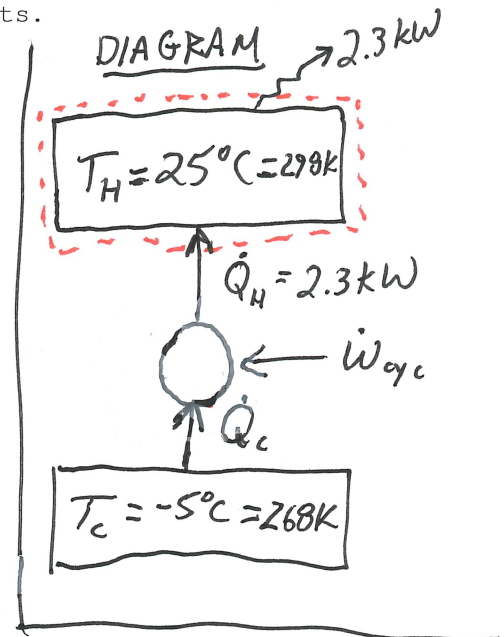 ts.
DIAGRAM
2.3kW
T_H = 25°C = 298K
Q̇_H = 2.3kW
Ẇ_cyc
Q̇_c
T_c = -5°C = 268K